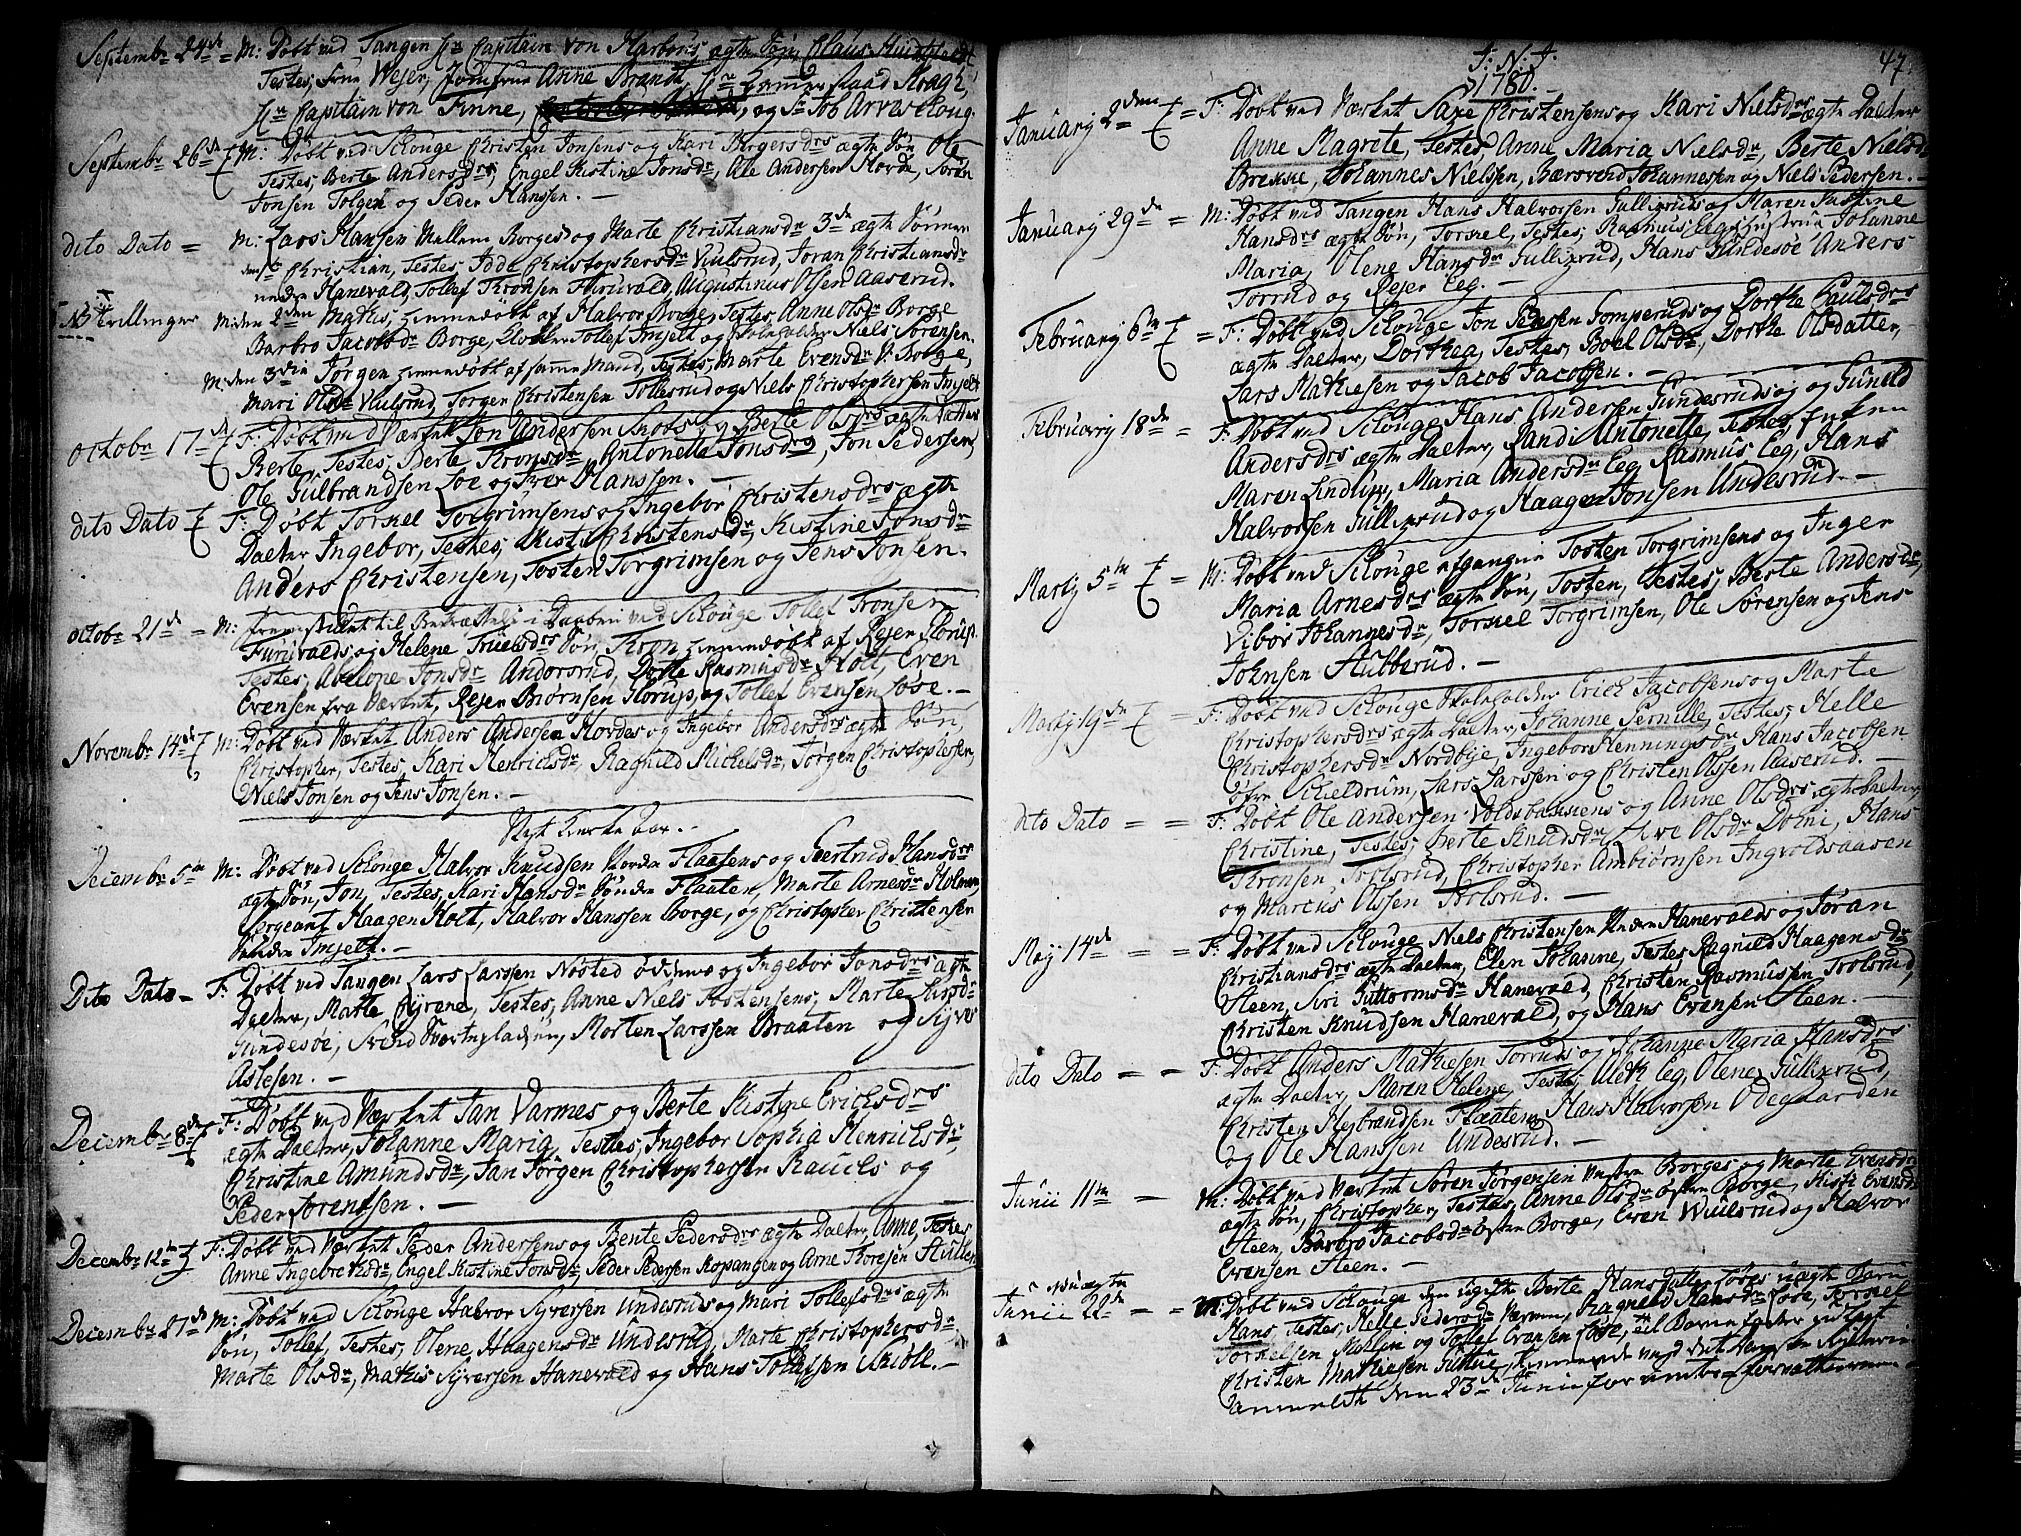 Septembr 24de = M: Døbt ved Tangen Hr Capitain von Harboes ægte Søn, Claus
Testes, Frue Wejer, Jomfrue Anne Brandt, Hr Cammerraad
Hr Capitain von Finne, og Sr Job Arvis
Septembr 26de M: Døbt ved Schouge Christen Jonsens og Kari Birgersdrs ægte Søn Ole
Testes, Berte Andersdr, Engel Kistine Jonsdr, Ole Andersen Horde, Sørén
Jonsen Tolgen og Peder Hanssen. —
dito Dato = M: Lars Hansen Mellem Borges og Marte Christiansdr 3de ægte Sønner
Christian, Testes, Christophersdr Viulsrud, Jøran Christiansdr
nedre Hanevald, Tollef Tronsen Furuvald, Augustinus Olsen Aaserud.
NB Trillinger M: den 2den Mathis, hiemmedøbt af Halvor Borge, Testes, Anne Olsdr Borge
Barbro Jacobsdr Borge, Klokker Tollef Imjelt og Skoleholder Niels Sørensen.
M: den 3die Jørgen hiemmedøbt af samme Mand, Testes, Marte Evensdr V: Borge,
Mari Olsdr Viulsrud Jørgen Christensen Tollesrud og Niels Christophersen Imjelt
Octobr 17de F: Døbt ved Værket Jon Andersen og Berte Olsdrs ægte Datter
Berte, Testes, Berte Tronsdr, Antonette Jonsdr, Jon Pedersen,
Ole Gulbrandsen Loe og Iver Hanssen. —
dito Dato F: Døbt Torkel Torgrimsens og Ingebor Christensdrs ægte
Daatter Ingebor, Testes, Kisti Christensdr, Kistine Jonsdr
Anders Christensen, Tosten Torgrimsen og Jens Jonsen.
Octobr 21de = M: Fremstillet til i Daaben ved Schouge Tollef Tronsen
Furuvalds og Helene Truelsdrs Søn, Tron hiemmedøbt af Rejer Storup.
Testes, Abelone Jonsdr Andorsrud, Dorte Rasmusdr Holt, Even
Evensen fra Værket, Rejer Biørnsen Storup, og Tollef Evensen Løse. —
Novembr 14de M: Døbt ved Værket Anders Andersen Hordes og Ingebor Andersdrs ægte Søn,
Christopher, Testes, Kari Henrichsdr, Ragnild Michelsdr, Jørgen Christophersen,
Niels Jonsen og Jens Jonsen. —
Nyt Kirke Aar. —
Decembr 5te M: Døbt ved Schouge Halvor Knudsen Nordre Flaatens og Giertrud Hansdrs
ægte Søn, Jon, Testes, Kari Hansdr Søndre Flaaten, Marte Arnesdr Holmen
Sergeant Haagen Holt, Halvor Hanssen Borge, og Christopher Christensen
Søndre Imjelt. —
Dito Dato — F: Døbt ved Tangen Lars Larssen Nøsted ødemos og Ingebor Jonsdrs ægte
Daatter, Marte Cyrene, Testes, Anne Niels Tostensens, Marte Larsdr
Gundesøe, Svend Svartepladsen, Morten Larssen Braaten og Syver
Aslesen. —
Decembr 8de F: Døbt ved Værket Jan Varmes og Berte Kistine Erichsdrs
ægte Daatter, Johanne Maria, Testes, Ingebor Sophia Henrichsdr
Christine Amundsdr, Jan Jørgen Christophersen Rauels og
Peder Lorentsen. —
Decembr 12te F: Døbt ved Værket Peder Andersens og Bente Pedersdrs ægte Daatter, Anne, Testes
Anne Ingebretsdr, Engel Kistine Jonsdr, Peder Pedersen Kopangen og Arne Toresen
Decembr 27de M: Døbt ved Schouge Halvor Syversen Undesruds og Mari Tollefsdrs ægte
Søn, Tollef, Testes, Olene Haagensdr Undesrud, Marte Christophersdr
Marte Olsdr, Mathis Syversen Hanevald og Hans Tollefsen Skidle. —
47.
J: N: J:
1780. —
Januarij 2den = F: Døbt ved Værket Saxe Christensens og Kari Nielsdrs ægte Daatter
Anne Magrete, Testes, Anne Maria Nielsdr, Berte Nielsdr
Brekke, Johannes Nielsen, Bærsvend Johannesen og Niels Pedersen. —
Januarij 29de = M: Døbt ved Tangen Hans Halvorsen Gullixruds og Maren Justine
Hansdrs ægte Søn, Torkel, Testes, Rasmus Eegs hustrue Johanne
Maria, Olene Hansdr Gullixrud, Hans Gundesøe Anders
Torrud og Rejer Eeg. —
Februarij 6te = F: Døbt ved Schouge Jon Pedersen Gomperuds og Dorthe Paulsdrs
ægte Daatter, Dorthea, Testes, Boel Olsdr, Dorthe Olsdatter,
Lars Mathiesen og Jacob Jacobsen. —
Februarij 18de = F: Døbt ved Schouge Hans Andersen Gundesruds og Gunild
Andersdrs ægte Daatter, Randi Antonette, Testes, Enken
Maren Lindlifr, Maria Andersdr Eeg, Rasmus Eeg, Hans
Halvorsen Gullixrud og Haagen Jonsen Undesrud. —
Martij 5te = M: Døbt ved Schouge afgangne Tosten Torgrimsens og Inger
Maria Arnesdrs ægte Søn, Tosten, Testes, Berte Andersdr,
Vibor Johannesdr, Torkel Torgrimsen, Ole Sørensen og Jens
Johnsen Stubberud. —
Martij 19de = F: Døbt ved Schouge Skoleholder Erich Jacobsens og Marte
Christophersdrs ægte Daatter, Johanne Pernille, Testes, Helle
Christophersdr Nordbye, Ingebor Henningsdr Hans Jacobsen
øfre Skieldrum, Lars Larssen og Christen Olssen Aaserud. —
dito Dato = = F: Døbt Ole Andersen Voldsbakkens og Anne Olsdrs ægte Daatter
Christine, Testes, Berte Knudsdr, Live Olsdr Dokni, Hans
Tronsen Trolsrud, Christopher Ambiørnsen Ingvoldsaasen
og Marcus Olssen Trolsrud. —
Maij 14de = = F: Døbt ved Schouge Niels Christensen Nedre Hanevalds og Jøran
Christiansdrs ægte Daatter, Elen Johanne, Testes, Ragnild Haagensdr
Steen, Siri Guttormsdr Hanevald, Christen Rasmussen Trolsrud,
Christen Knudsen Hanevald, og Hans Evensen Steen. —
dito Dato — — F: Døbt Anders Mathiesen Torruds og Johanne Maria Hansdrs
ægte Daatter, Maren Helene, Testes, Aleth Eeg, Olene Gullixrud,
Christen Heybrandsen Flaaten, Hans Halvorsen Ødegaarden
og Ole Hanssen Undesrud. —
Junii 11te — M: Døbt ved Værket Søren Jørgensen Vestre Borges og Marte Evensdrs
ægte Søn, Christopher, Testes, Anne Olsdr østre Borge, Kisti Evensdr
Steen, Barbro Jacobsdr østre Borge, Even Wiulsrud og Halvor
Evensen Steen. —
uægte
Junii 22de — = M: Døbt ved Schouge den ugifte Berte Hansdatter Løses uægte Barn
Hans, Testes, Helle Pedersdr, Ragnild Hansdr Løse, Torkel
Torkelsen Mælin og Tollef Evensen Løse, til Barnefader udlagt
Christen Mathiesen
Anmeldt den 23de Junii